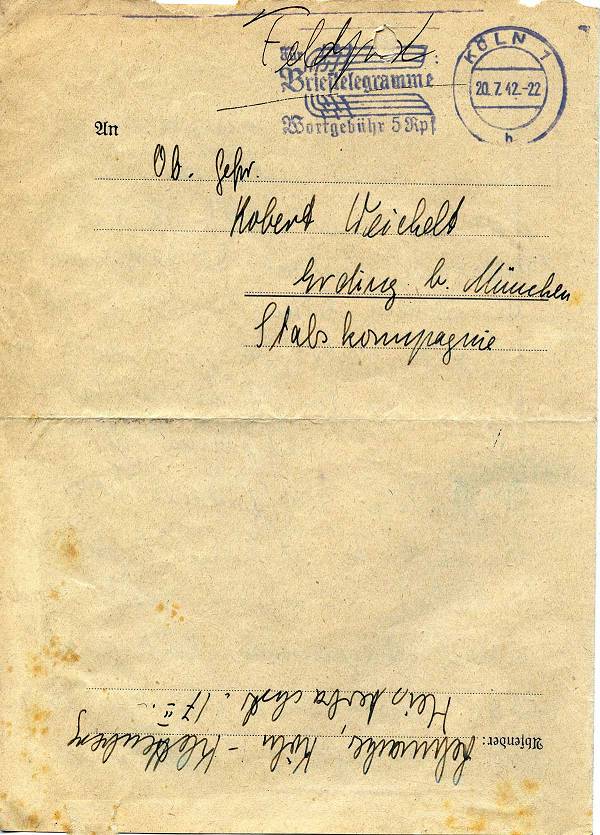 Feldpost
Für
Brieftelegramme
Wortgebühr 5 Rpf
KÖLN 1
20.7.42.-22
h
An
Ob. Gefr.
Robert Weichelt
Erding b. München
Stabskompagnie
Absender: Köln - Klettenberg
17 II